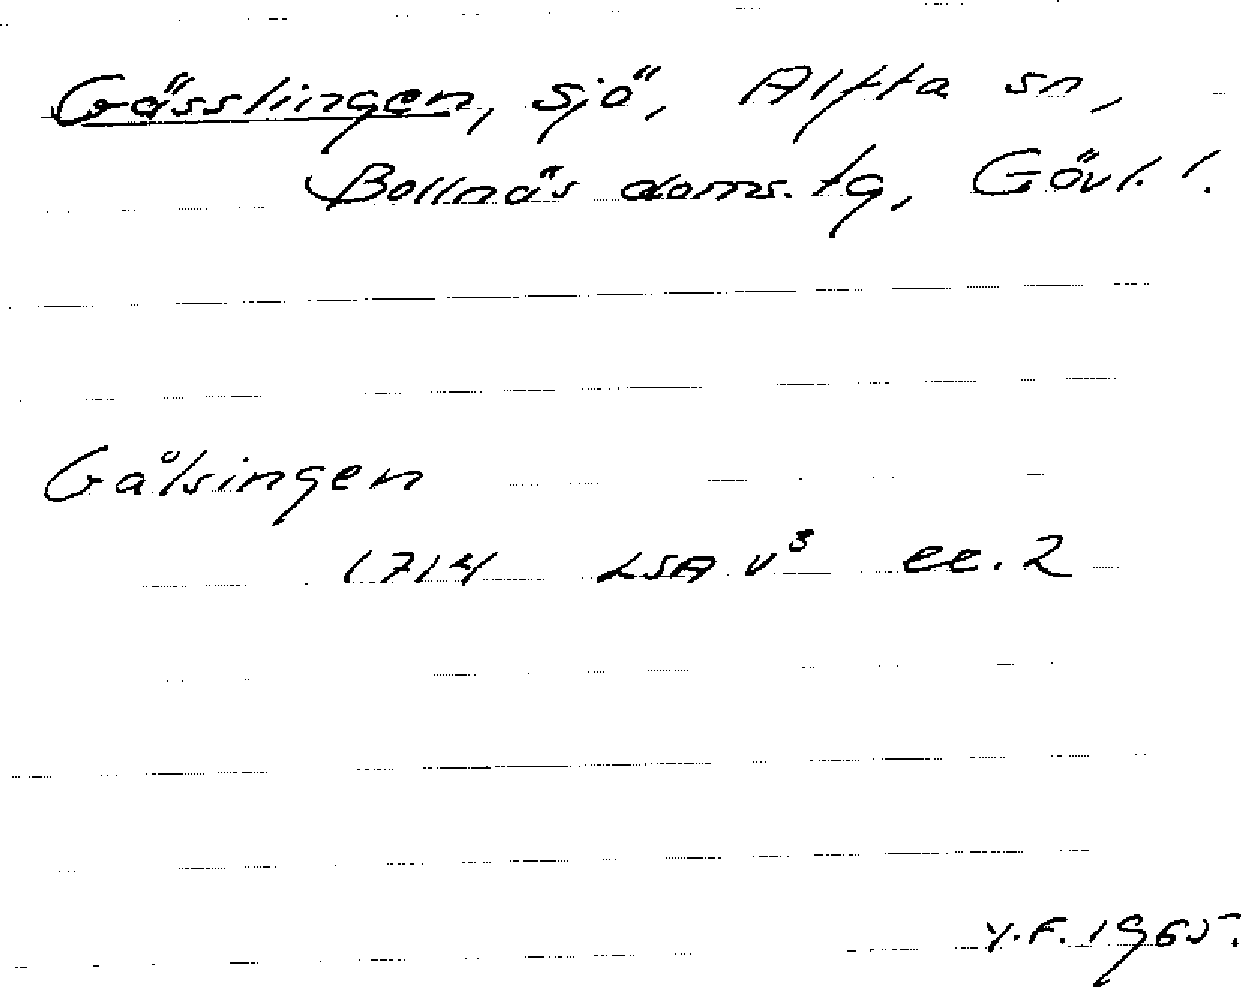 Gässlingen, sjö, Alfta sn,
Bollnäs doms. tg, Gävl. l.
Gålsingen
1714 LSA V³ ee. 2
Y.F. 1965.